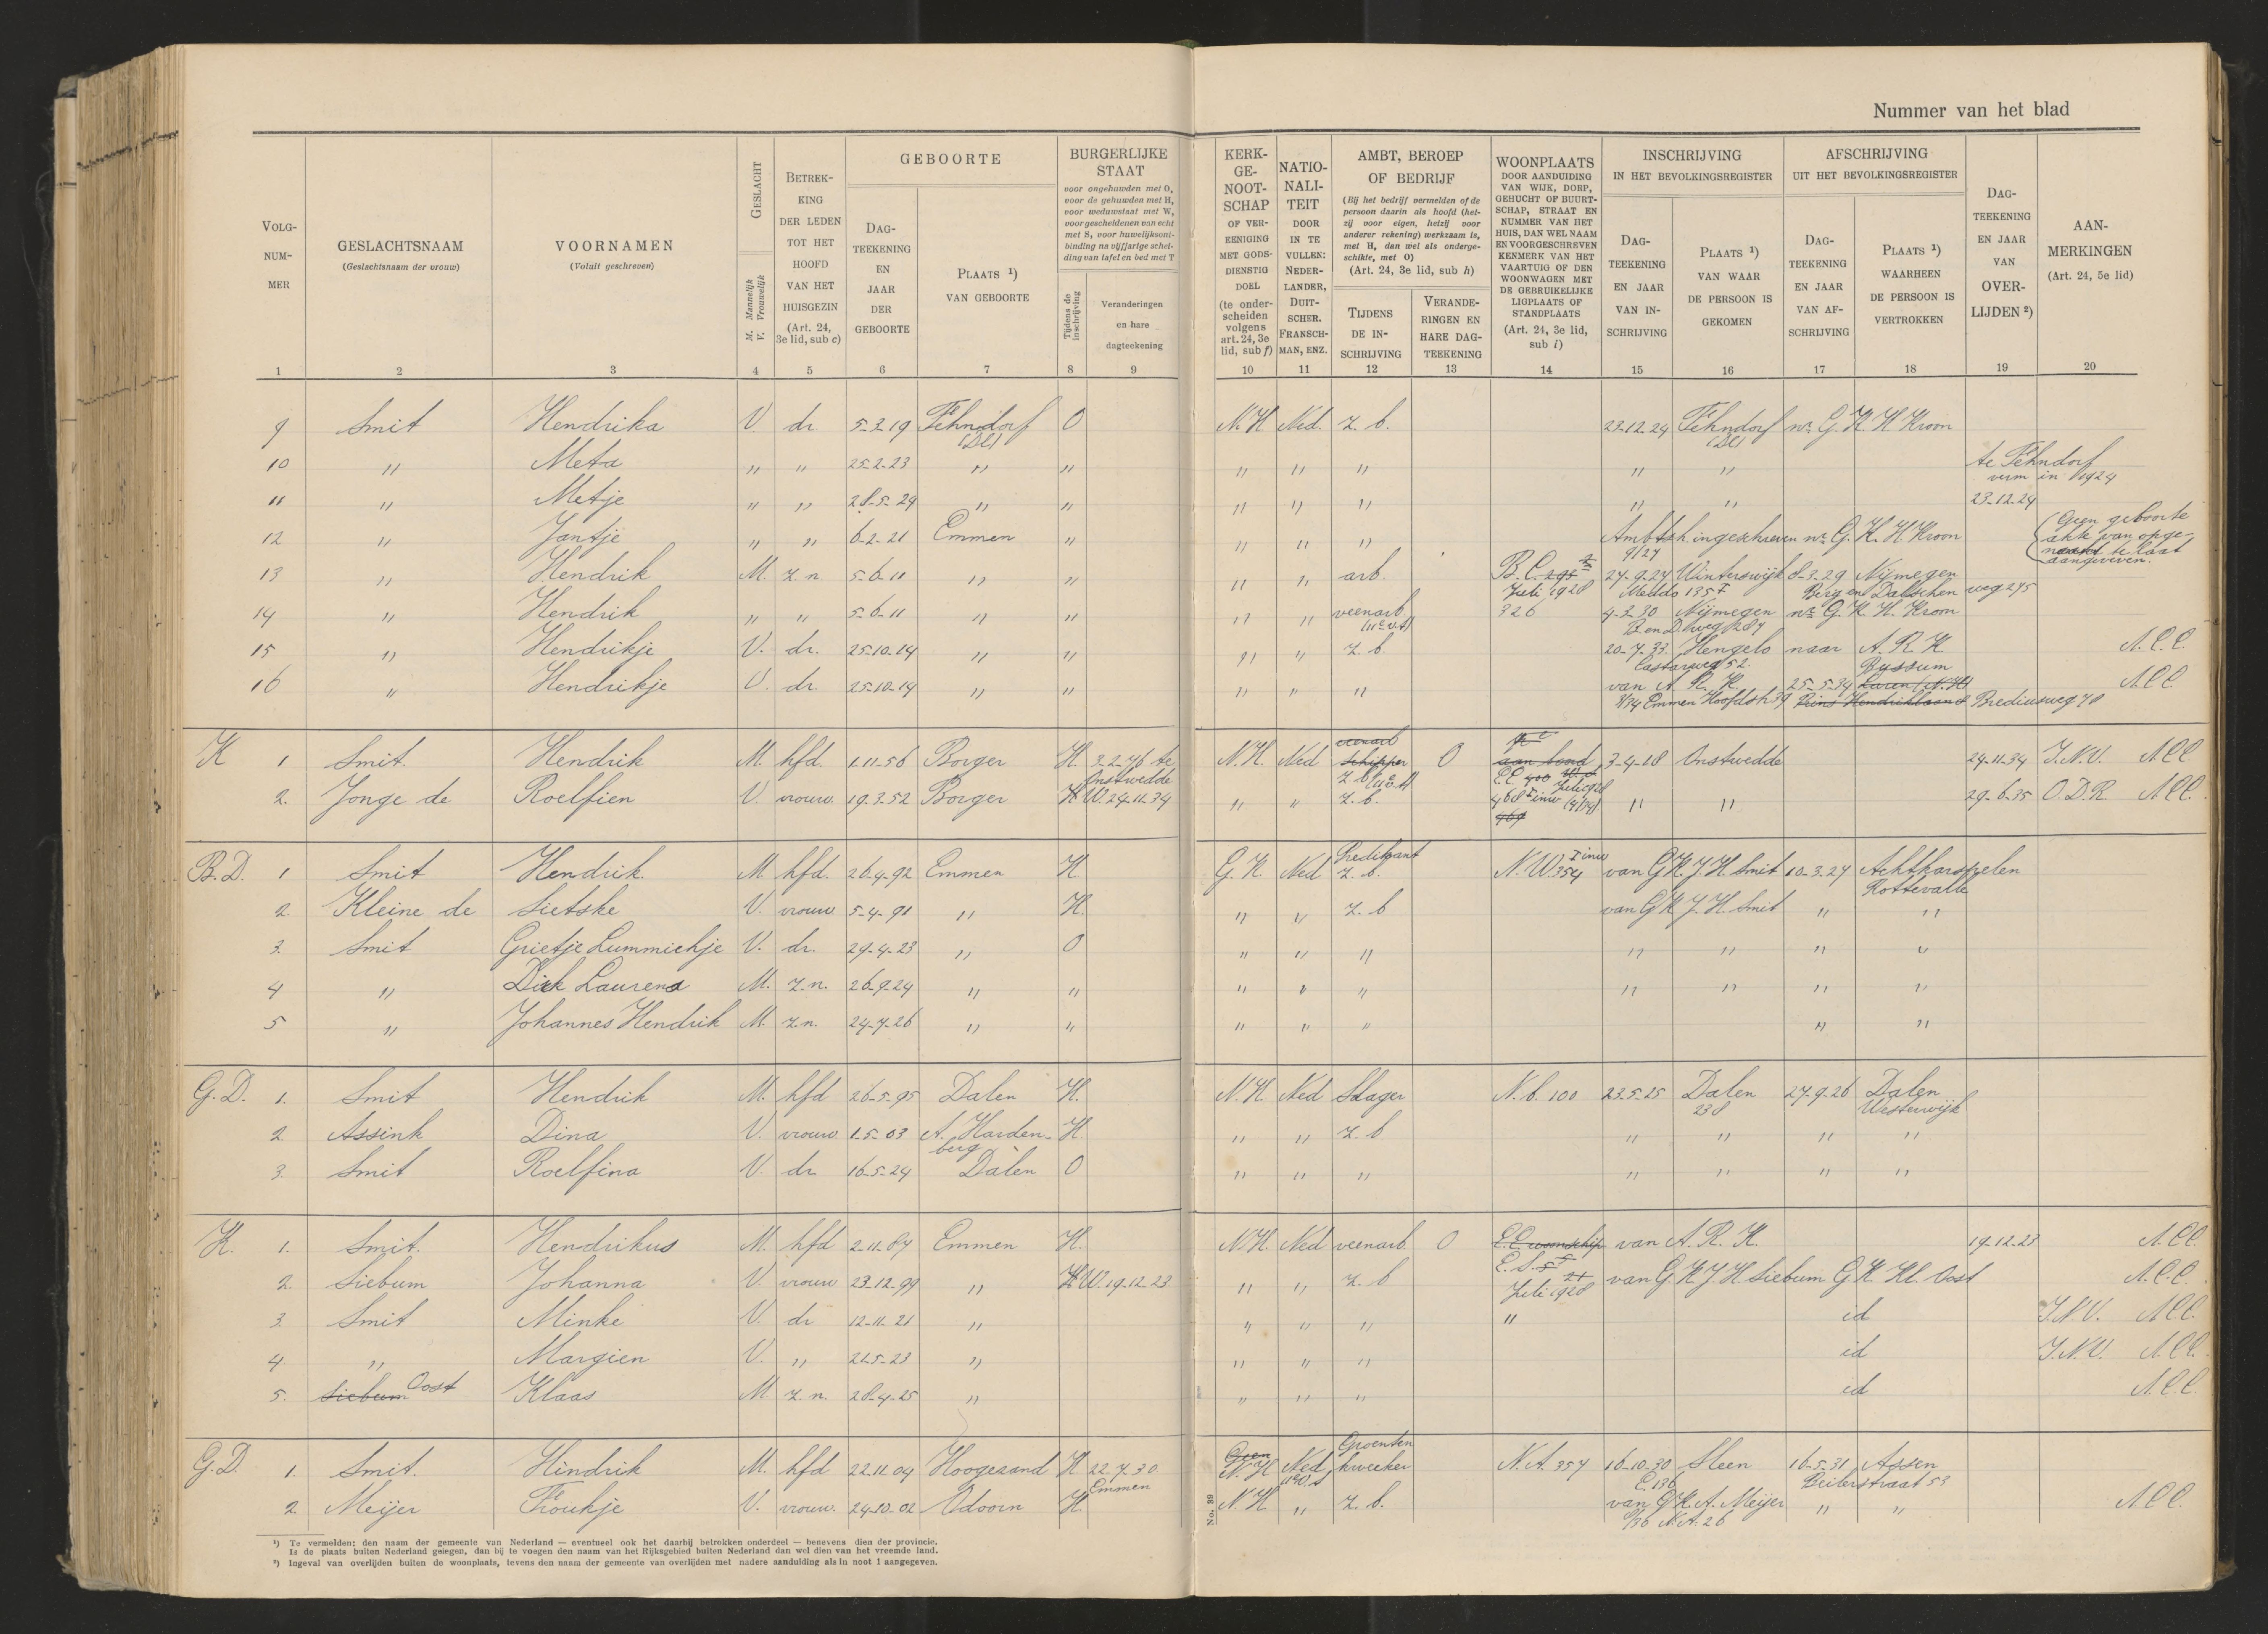 Nummer van het blad
VOLG-NUMMER
GESLACHTSNAAM
(Geslachtsnaam der vrouw)
VOORNAMEN
(Voluit geschreven)
GESLACHT
M. Mannelijk
V. Vrouwelijk
BETREKKING DER LEDEN TOT HET HOOFD VAN HET HUISGEZIN
(Art. 24, 3e lid, sub c)
GEBOORTE
DAGTEEKENING EN JAAR DER GEBOORTE
PLAATS ¹) VAN GEBOORTE
BURGERLIJKE STAAT
voor ongehuwden met O,
voor de gehuwden met H,
voor weduwstaat met W,
voor gescheidenen van echt
met S, voor huwelijksont-
binding na vijfjarige schei-
ding van tafel en bed met T
Tijdens de inschrijving
Veranderingen en hare dagteekening
KERK-GE-NOOT-SCHAP
OF VER-EENIGING MET GODS-DIENSTIG DOEL
(te onder-scheiden volgens art. 24, 3e lid, sub f)
NATIO-NALI-TEIT
DOOR IN TE VULLEN: NEDER-LANDER, DUIT-SCHER, FRANSCH-MAN, ENZ.
AMBT, BEROEP OF BEDRIJF
(Bij het bedrijf vermelden of de persoon daarin als hoofd (het-zij voor eigen, hetzij voor anderer rekening) werkzaam is, met H, dan wel als onderge-schikte, met O)
(Art. 24, 3e lid, sub h)
TIJDENS DE IN-SCHRIJVING
VERANDE-RINGEN EN HARE DAG-TEEKENING
WOONPLAATS
DOOR AANDUIDING VAN WIJK, DORP, GEHUCHT OF BUURT-SCHAP, STRAAT EN NUMMER VAN HET HUIS, DAN WEL NAAM EN VOORGESCHREVEN KENMERK VAN HET VAARTUIG OF DEN WOONWAGEN MET DE GEBRUIKELIJKE LIGPLAATS OF STANDPLAATS
(Art. 24, 3e lid, sub i)
INSCHRIJVING
IN HET BEVOLKINGSREGISTER
DAG-TEEKENING EN JAAR VAN IN-SCHRIJVING
PLAATS ¹) VAN WAAR DE PERSOON IS GEKOMEN
AFSCHRIJVING
UIT HET BEVOLKINGSREGISTER
DAG-TEEKENING EN JAAR VAN AF-SCHRIJVING
PLAATS ¹) WAARHEEN DE PERSOON IS VERTROKKEN
DAG-TEEKENING EN JAAR VAN OVER-LIJDEN ²)
AAN-MERKINGEN
(Art. 24, 5e lid)
1 2 3 4 5 6 7 8 9 10 11 12 13 14 15 16 17 18 19 20
9 Smit Hendrika V. dr. 5-3-19 Fehndorf (Dl) O N.H. Ned. z. b. 23-12-24 Fehndorf (Dl) nr. G.K. H Kroon
10 " Meta " " 25-2-23 " " " " " " " te Fehndorf verm in 1924
11 " Metje " " 28-5-24 " " " " " " " 23-12-24
12 " Jantje " " 6-2-21 Emmen " " " " Ambtsh ingeschreven nr. G.K. H. Kroon 9/27 (Geen geboorte akte van opge- te laat aangegeven.
13 " Hendrik M. z.n. 5-6-11 " " " " arb. B.C. 295 Juli 1928 27-9-27 Winterswijk Meddo 135 I 8-3-29 Nijmegen Berg en Dalschen weg 275
14 " Hendrik " " 5-6-11 " " " " veenarb 326 4-3-30 Nijmegen B en D. weg 287 nr. G.K. H. Kroon
15 " Hendrikje V. dr. 25-10-14 " " " " z. b. 20-7-33 Hengelo 52. naar A.R.K. A.C.C.
16 " Hendrikje V. dr. 25-10-14 " " " " " van A.R.K. Emmen Hoofdstr 39 25-5-34 Bussum Laren (N.H) Prins Hendriklaan 8 Brediusweg 78 A.C.C.
K 1 Smit. Hendrik M. hfd. 1.11.56 Borger H. 3-2-76 te Onstwedde N.H. Ned veenarb schipper z b O aan boord E.C. 400 Juli 1928 3-4-18 Onstwedde 24-11-34 J.N.V. A.C.C.
2. Jonge de Roelfien V. vrouw 19.3.52 Borger H W. 24-11-34 " " z. b. 468 I inw 469 " " 29-6-35 O.D.R. A.C.C.
B.D. 1 Smit Hendrik. M. hfd. 26.4.92 Emmen H. G.K. Ned Predikant z. b. N.W. 354 I inw van G.K. J H Smit 10-3-27 Achtkarspelen Rottevalle
2. Kleine de Sietske V. vrouw 5-4-91 " H. " " z. b van G K J. H. Smit " "
3. Smit Grietje Lummichje V. dr. 29-4-23 " O " " " " " " "
4 " Dirk Laurens M. z.n. 26-9-24 " " " " " " " " "
5 " Johannes Hendrik M. z.n. 24-7-26 " " " " " " "
G.D. 1. Smit Hendrik M. hfd 26-5-95 Dalen H. N.H. Ned Slager N.b. 100 23-5-25 Dalen 238 27-9-26 Dalen Westerwijk
2 Assink Dina V. vrouw 1-5-03 A. Hardenberg H " " z. b " " " "
3. Smit Roelfina V. dr 16-5-24 Dalen O " " " " " " "
K. 1. Smit. Hendrikus M. hfd 2-11-84 Emmen H. N.H. Ned veenarb. O E.C. woonschip van A.R.K. 19-12-23 A.C.C.
2. Siebum Johanna V. vrouw 23-12-99 " H W. 19-12-23 " " z. b E.S. Juli 1928 van G K J H Siebum G.K. Kl. Oost A.C.C.
3. Smit Minke V. dr 12-11-21 " " " " " id J.N.V. A.C.C.
4 " Margien V. " 21-5-23 " " " " id J.N.V. A.C.C.
5. Siebum Oost Klaas M z.n. 28-4-25 " " " " id A.C.C.
G.D. 1. Smit. Hindrik M. hfd 22-11-04 Hoogezand H 22.7.30 Emmen Geen N.H Ned Groenten kweeker N.A. 357 16-10-30 Sleen C. 136 16-5-31 Assen Beilerstraat 53
2. Meijer Froukje V. vrouw. 24-10-02 Odoorn H. N.H " z. b. van G.K. A. Meijer N.A. 26 " " A.C.C.
¹) Te vermelden: den naam der gemeente van Nederland — eventueel ook het daarbij betrokken onderdeel — benevens dien der provincie.
Is de plaats buiten Nederland gelegen, dan bij te voegen den naam van het Rijksgebied buiten Nederland dan wel dien van het vreemde land.
²) Ingeval van overlijden buiten de woonplaats, tevens den naam der gemeente van overlijden met nadere aanduiding als in noot 1 aangegeven.
No. 39